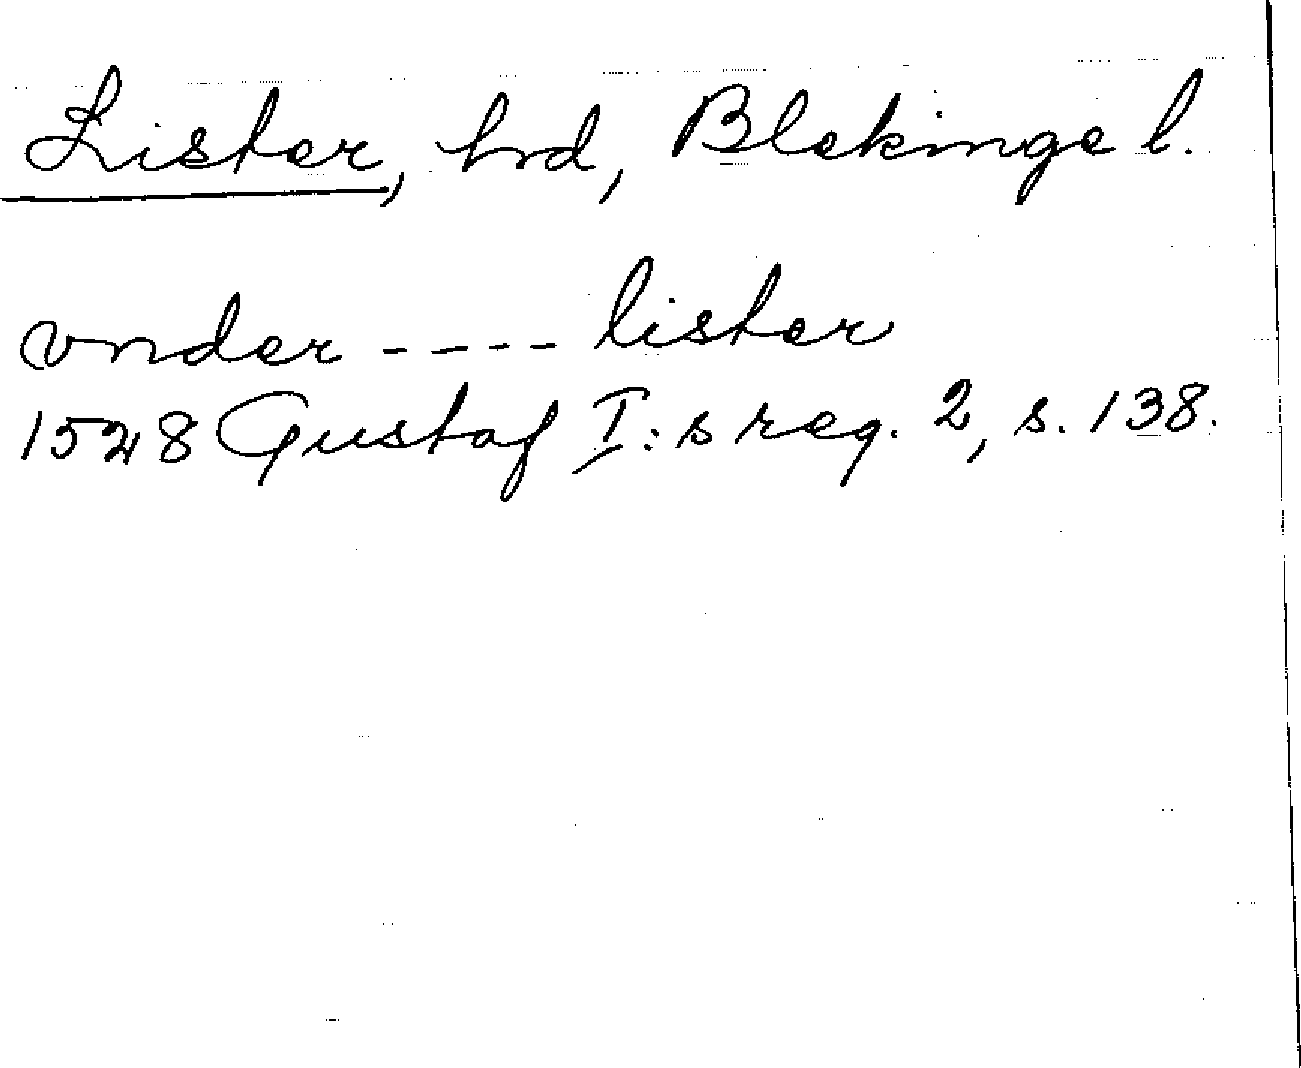 Lister, hrd, Blekinge l.
vnder ---- lister
1528 Gustaf I:s reg. 2, s. 138.